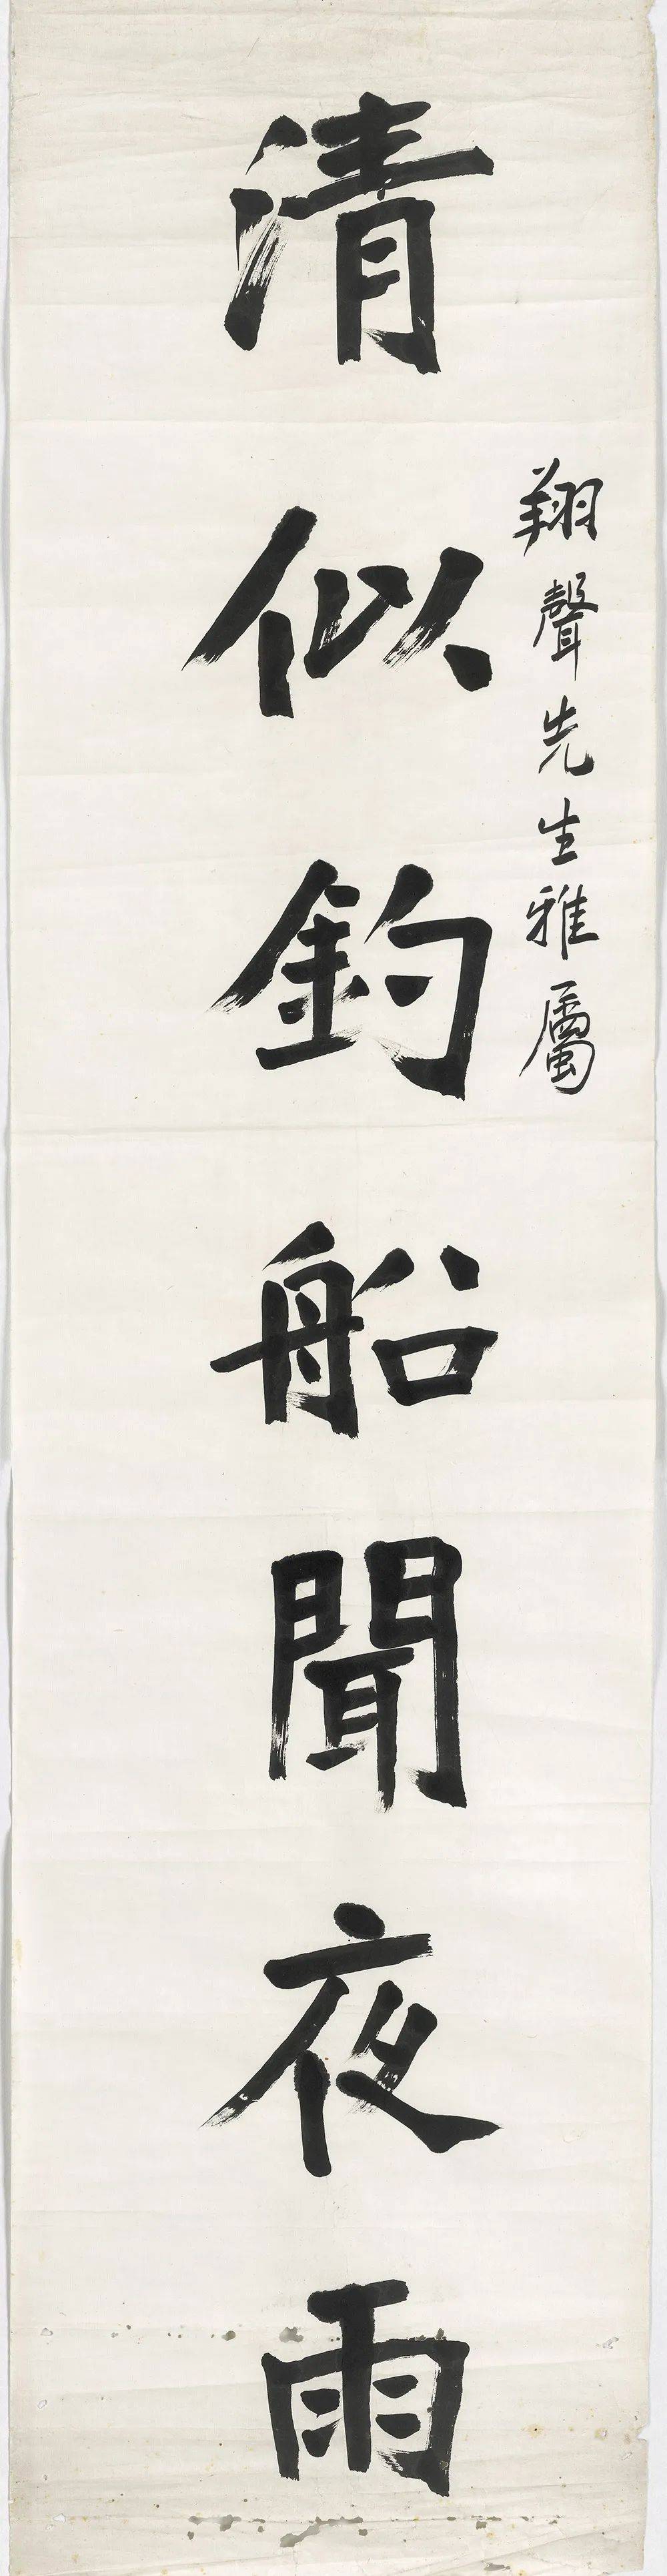 翔聲先生雅屬
清似釣船聞夜雨